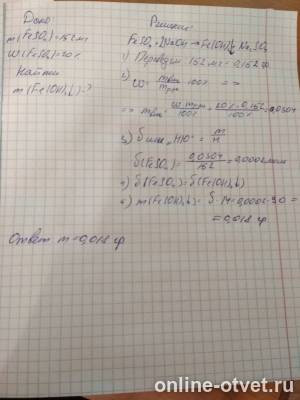 Дано
m(FeSO₄)=152мг
W(FeSO₄)=20%
Найти
m(Fe(OH)₂↓)-?
Решение
FeSO₄+2NaOH→Fe(OH)₂↓+Na₂SO₄
1) Переведём 152 мг = 0,152 гр
2) ω = mв-ва / mр-ра · 100% = >
=> mв-ва = ω·mр-ра / 100% = 20%·0,152 / 100% = 0,0304
3) или „НЮ" = m/M
(FeSO₄) = 0,0304/152 = 0,0002 моль
4) δ(FeSO₄)=δ(Fe(OH)₂↓)
m(Fe(OH)₂↓)=δ·M=0,0002·90=
=0,018 гр
Ответ m=0,018 гр
online-otvet.ru